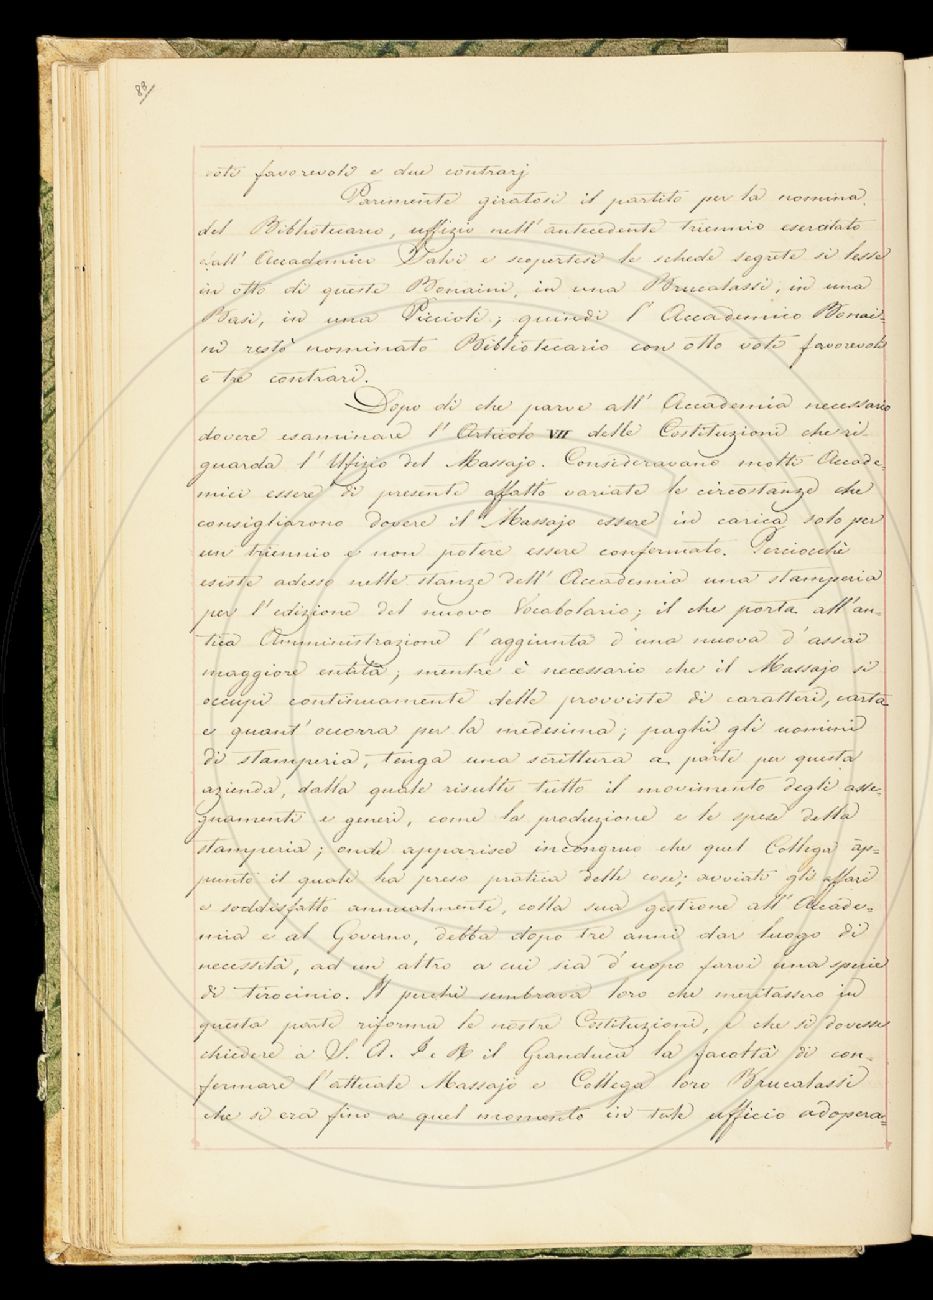 88
voti favorevoli e due contrarj
Parimente giratosi il partito per la nomina
del Bibliotecario, uffizio nell'antecedente triennio esercitato
dall'Accademico Salvi e scopertesi le schede segrete si lesse
in otto di queste Bonaini, in una Brucalassi, in una
Basi, in una Piccioli; quindi l'Accademico Bonai-
ni restò nominato Bibliotecario con otto voti favorevoli
e tre contrari.
Dopo di che parve all'Accademia necessario
dovere esaminare l'Articolo VII delle Costituzioni che ri
guarda l'Ufizio del Massajo. Consideravano molti Accade-
mici essere di presente affatto variate le circostanze che
consigliarono dovere il Massajo essere in carica solo per
un triennio e non potere essere confermato. Perciocchè
esiste adesso nelle stanze dell'Accademia una stamperia
per l'edizione del nuovo Vocabolario; il che porta all'an-
tica Amministrazione l'aggiunta d'una nuova d'assai
maggiore entità; mentre è necessario che il Massajo si
occupi continuamente delle provviste di caratteri, carta
e quant'occorra per la medesima; paghi gli uomini
di stamperia, tenga una scrittura a parte per questa
azienda, dalla quale risulti tutto il movimento degli asse-
gnamenti e generi, come la produzione e le spese della
stamperia; onde apparisce incongruo che quel Collega ap-
punto il quale ha preso pratica delle cose; avviati gli affari
e soddisfatto annualmente, colla sua gestione all'Accade-
mia e al Governo, debba dopo tre anni dar luogo di
necessità, ad un altro a cui sia d'uopo farvi una specie
di tirocinio. Il perchè sembrava loro che meritassero in
questa parte riforma le nostre Costituzioni, e che si dovesse
chiedere a S. A. I e R il Granduca la facoltà di con-
fermare l'attuale Massajo e Collega loro Brucalassi
che si era fino a quel momento in tale ufficio adopera-